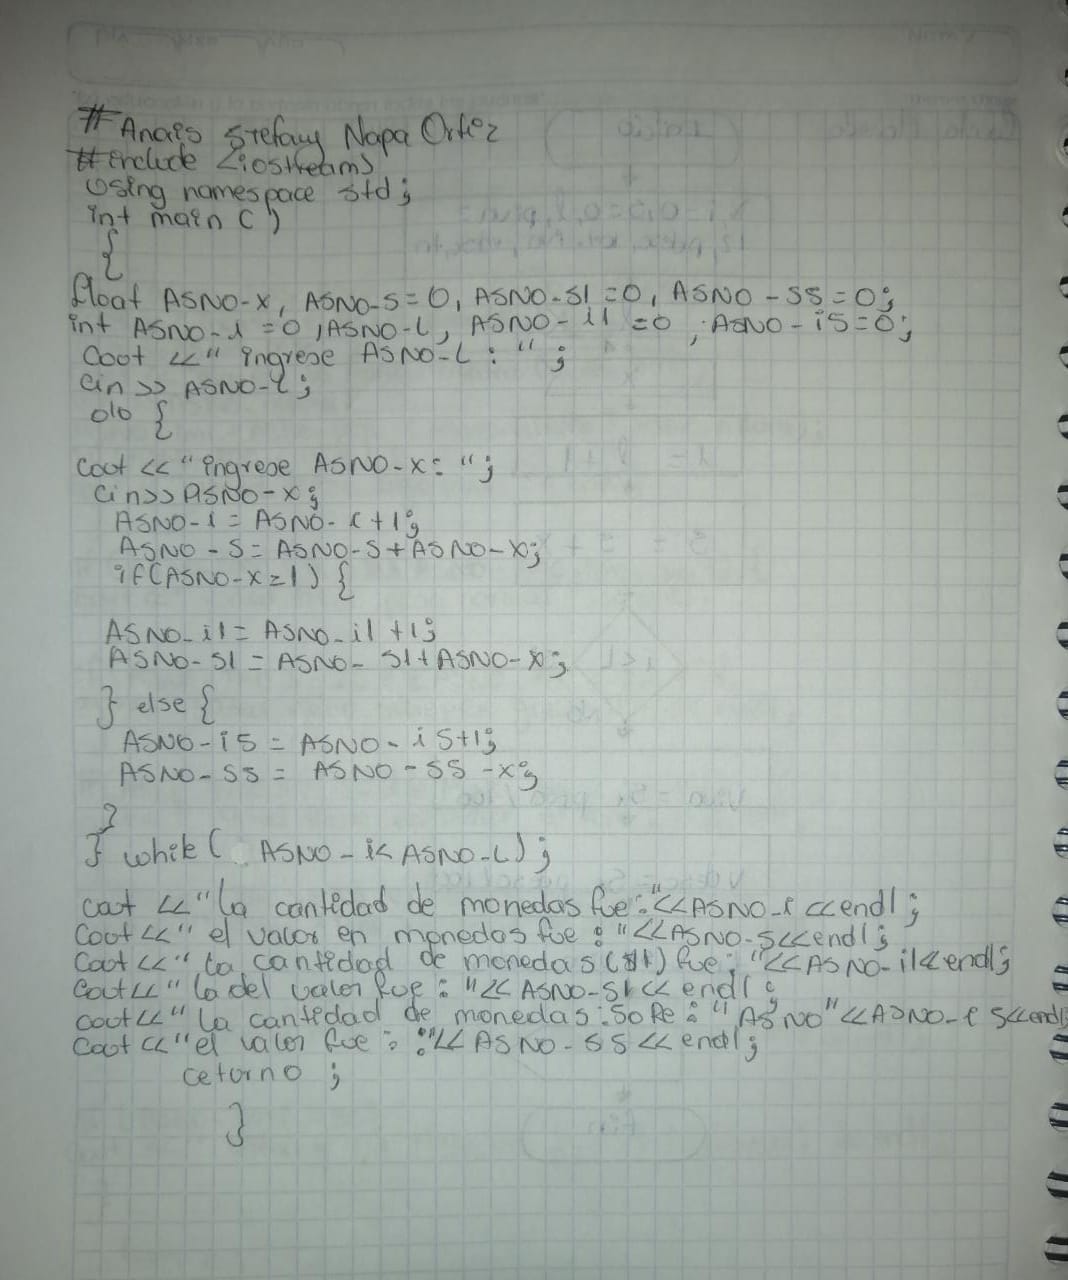 # Anais Stefany Napa Ortiz
#include <iostream>
using namespace std;
int main ()
{
float ASNO-x, ASNO-s=0, ASNO-s1=0, ASNO-ss=0;
int ASNO-i=0, ASNO-L, ASNO-i1=0, ASNO-is=0;
cout <<" ingrese ASNO-L: ";
cin >> ASNO-L;
do {
cout << "ingrese ASNO-x: ";
cin>> ASNO-x;
ASNO-i = ASNO-i+1;
ASNO-s= ASNO-s+ASNO-x;
if(ASNO-x=1) {
ASNO-i1= ASNO-i1+1;
ASNO-s1 = ASNO-s1+ASNO-x;
} else {
ASNO-is = ASNO-is+1;
ASNO-ss = ASNO-ss-x;
}
} while( ASNO-i< ASNO-L);
cout <<"la cantidad de monedas fue:"<<ASNO-i <<endl;
cout<<" el valor en monedas fue : "<<ASNO-s<<endl;
cout<<" la cantidad de monedas (s/1) fue: "<<ASNO-i1<<endl;
cout<<" la del valor fue : "<< ASNO-s1<< endl;
cout<<" la cantidad de monedas: so fe : "ASNO"<<ASNO-is<<endl;
cout <<"el valor fue : :"<< ASNO-ss<< endl;
retorno ;
}